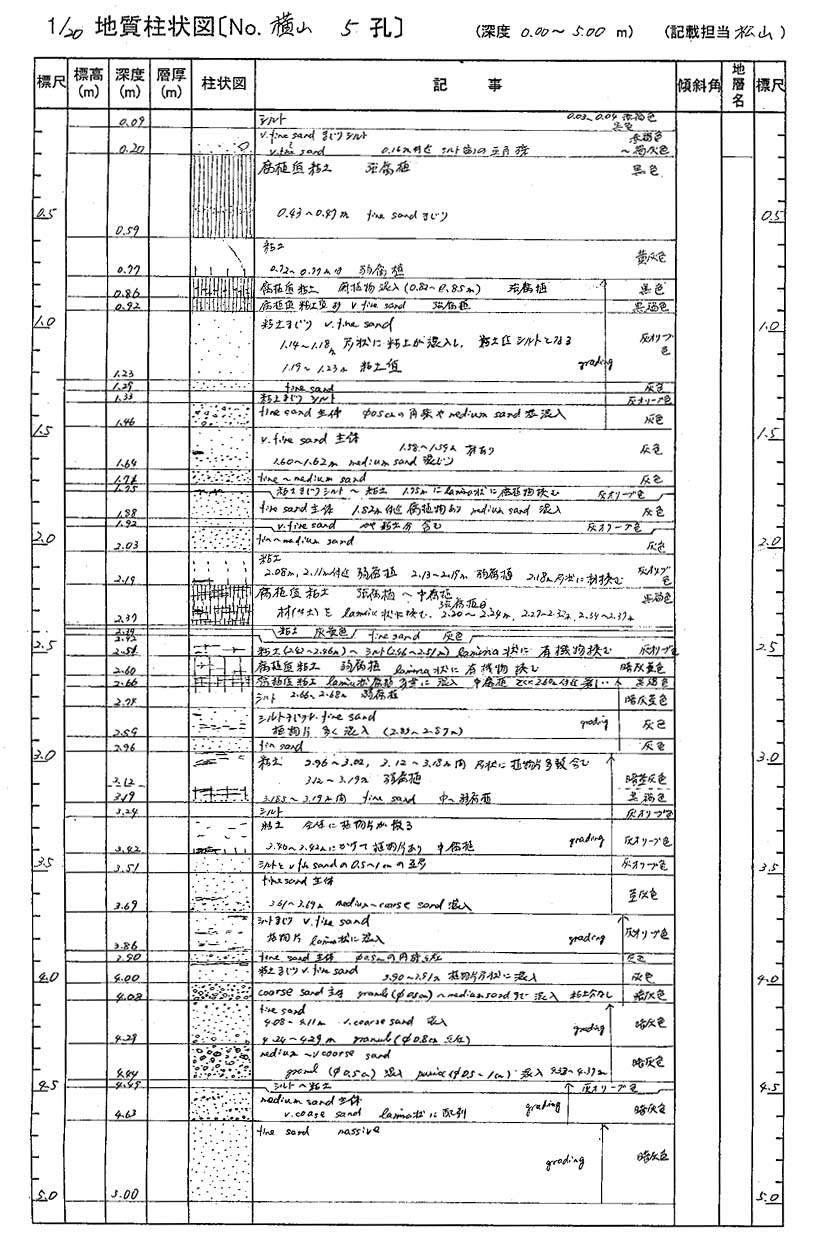 1/20 地質柱状図〔No. 横山 5 孔〕 (深度 0.00～5.00 m) (記載担当 松山)
標尺 標高(m) 深度(m) 層厚(m) 柱状図 記 事 傾斜角 地層名 標尺
0.09 シルト 0.03~0.04 赤褐色
黒色
v.fine sand まじりシルト
0.20 v.fine sand
腐植質粘土 強腐植 黒色
0.5 0.43~0.47m fine sand まじり 0.5
0.59
粘土 黄灰色
0.77 0.72~0.77mは 弱腐植
0.86 腐植質粘土 腐植物混入(0.82~0.85m) 強腐植 黒色
0.92 腐植質粘土質 v.fine sand 強腐植 黒褐色
1.0 粘土まじり v.fine sand 1.0
1.14~1.18m 片状に粘土が混入し、粘土質シルトとなる 灰オリーブ色
1.23 1.19~1.23m 粘土質 grading
1.29 fine sand 灰色
1.33 粘土まじりシルト 灰オリーブ色
1.46 fine sand 主体 φ0.5cmの角礫や medium sand 混入 灰色
1.5 v.fine sand 主体 1.5
1.58~1.59m 材あり 灰色
1.64 1.60~1.62m medium sand 混じり
1.74 fine~medium sand 灰色
1.75 粘土まじりシルト~粘土 1.75mにlamina状に腐植物挟む 灰オリーブ色
1.88 fine sand 主体 1.82m付近 腐植物あり medium sand 混入 灰色
1.92 v.fine sand やや粘土分含む 灰オリーブ色
2.0 2.03 fine~medium sand 灰色 2.0
粘土
2.19 2.08m, 2.11m付近 弱腐植 2.13~2.15m 弱腐植 2.18m片状に材挟む 灰オリーブ色
腐植質粘土 強腐植~中腐植 黒褐色
2.37 lamina状に挟む. 2.20~2.24m, 2.27~2.32m, 2.34~2.37m
2.42 粘土 灰黄色 fine sand 灰色
2.5 2.54 粘土(2.42~2.46m)~シルト(2.46~2.51m) lamina状に有機物挟む 灰オリーブ色 2.5
2.60 腐植質粘土 弱腐植 lamina状に有機物挟む 暗灰黄色
2.66 腐植質粘土 黒褐色
シルト 2.66~2.68m 弱腐植 暗灰黄色
2.74
シルトまじりv.fine sand grading 灰色
2.89 植物片多く混入 (2.83~2.87m)
2.96 fine sand 灰色
3.0 粘土 2.96~3.02, 3.12~3.18m間 片状に植物片多数含む 3.0
3.12 3.12~3.19m 弱腐植 暗黄灰色
3.19 3.185~3.19m間 fine sand 中~弱腐植 黒褐色
3.24 シルト 灰オリーブ色
粘土 全体に植物片が散る grading 灰オリーブ色
3.42 3.40~3.42mにかけて植物片あり 中腐植
3.5 3.51 シルトとv.fine sandの0.5~1cmの互層 灰オリーブ色 3.5
fine sand 主体 黄灰色
3.69 3.61~3.69m medium~coarse sand 混入
シルトまじり v.fine sand 灰オリーブ色
3.86 植物片 lamina状に混入 grading
3.90 fine sand 主体 φ0.5cmの角礫点在 灰色
4.0 4.00 粘土まじりv.fine sand 3.90~3.91m 植物片片状に混入 灰色 4.0
4.08 coarse sand 主体 granule(φ0.5cm)~medium sandまで混入 粘土分なし 暗灰色
fine sand
4.08~4.11m v.coarse sand 混入 暗灰色
4.29 4.24~4.29m granule(φ0.8cm点在) grading
medium~v.coarse sand 暗灰色
4.44 granule(φ0.5cm)混入 pumice(φ0.5~1cm)混入 4.33~4.39m
4.5 4.49 シルト~粘土 灰オリーブ色 4.5
medium sand 主体
4.63 v.coase sand lamina状に配列 grading 暗灰色
fine sand massive
grading 暗灰色
5.0 5.00 5.0